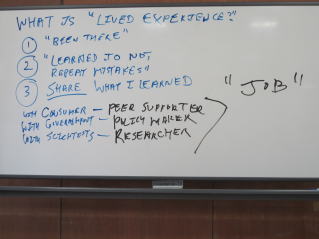 WHAT IS "LIVED EXPERIENCE?"
1 "BEEN THERE"
2 "LEARNED TO NOT
REPEAT MISTAKES"
3 SHARE WHAT I LEARNED
"JOB"
WITH CONSUMER — PEER SUPPORTER
WITH GOVERNMENT — POLICY MAKER
WITH SCIENTISTS — RESEARCHER